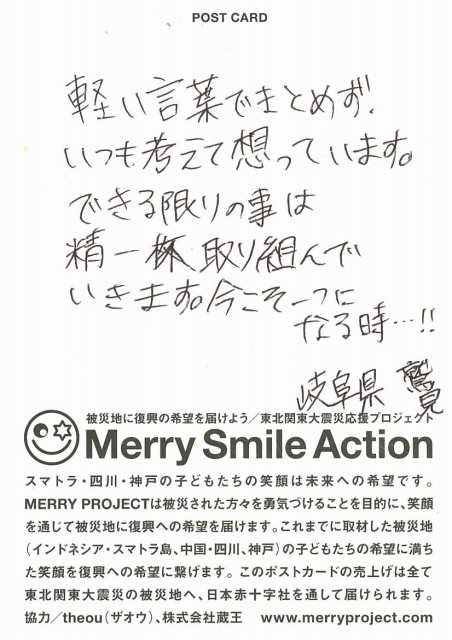 POST CARD
軽い言葉でまとめず!
いつも考えて想っています。
できる限りの事は
精一杯取り組んで
いきます。今こそ一つに
なる時…!!
岐阜県 鷲見
被災地に復興の希望を届けよう／東北関東大震災応援プロジェクト
Merry Smile Action
スマトラ・四川・神戸の子どもたちの笑顔は未来への希望です。
MERRY PROJECTは被災された方々を勇気づけることを目的に、笑顔
を通じて被災地に復興への希望を届けます。これまでに取材した被災地
(インドネシア・スマトラ島、中国・四川、神戸)の子どもたちの希望に満ち
た笑顔を復興への希望に繋げます。このポストカードの売上げは全て
東北関東大震災の被災地へ、日本赤十字社を通して届けられます。
協力／theou(ザオウ)、株式会社蔵王 www.merryproject.com